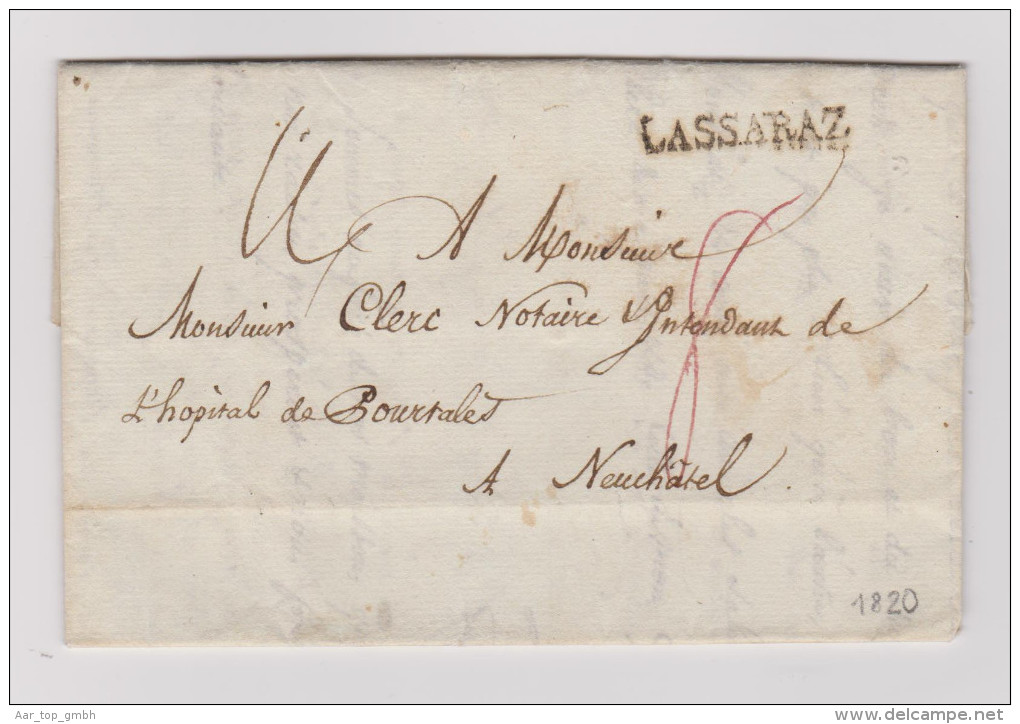 LASSARAZ
A Monsieur
Monsieur Clerc Notaire & Intendant de
L'hopital de Pourtales
A Neuchâtel.
8
1820
Aar_top_gmbh
delcampe.net